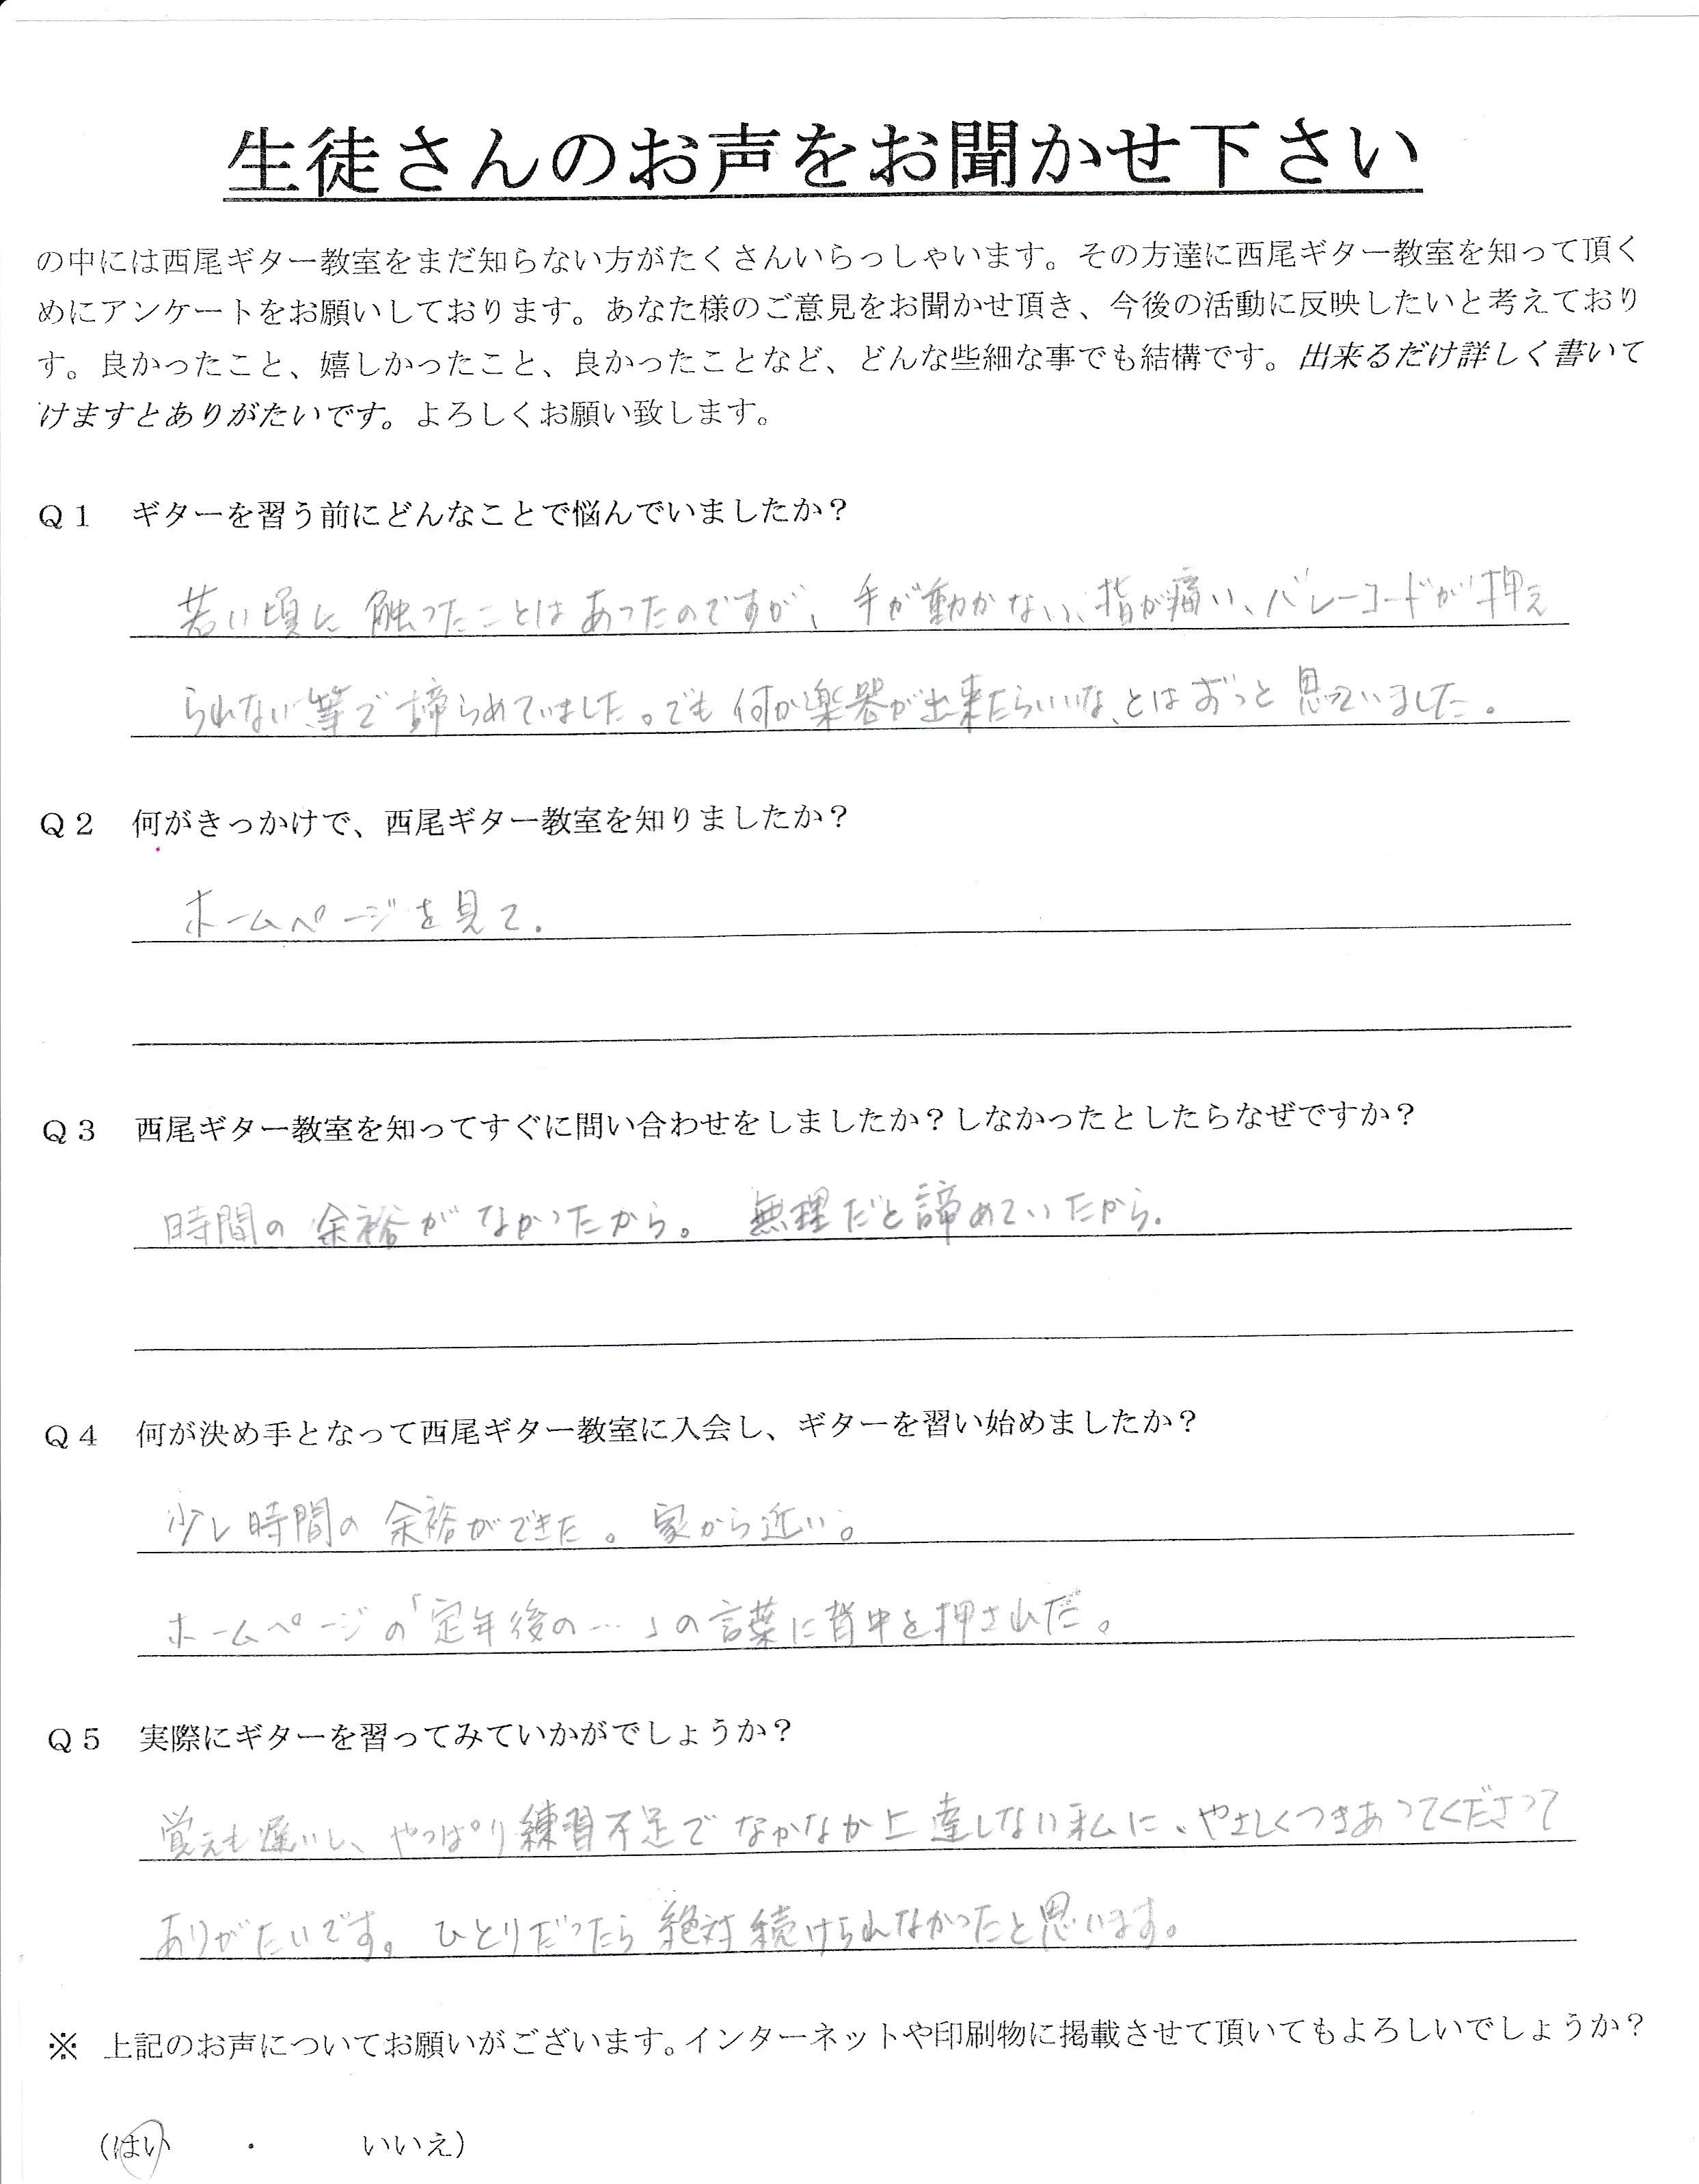 生徒さんのお声をお聞かせ下さい
の中には西尾ギター教室をまだ知らない方がたくさんいらっしゃいます。その方達に西尾ギター教室を知って頂く
めにアンケートをお願いしております。あなた様のご意見をお聞かせ頂き、今後の活動に反映したいと考えており
す。良かったこと、嬉しかったこと、良かったことなど、どんな些細な事でも結構です。出来るだけ詳しく書いて
けますとありがたいです。よろしくお願い致します。
Q1 ギターを習う前にどんなことで悩んでいましたか？
若い頃に触ったことはあったのですが、手が動かない、指が痛い、バレーコードが押え
られない、等で諦らめていました。でも何か楽器が出来たらいいな、とはずっと思っていました。
Q2 何がきっかけで、西尾ギター教室を知りましたか？
ホームページを見て.
Q3 西尾ギター教室を知ってすぐに問い合わせをしましたか？しなかったとしたらなぜですか？
時間の余裕がなかったから。無理だと諦めていたから.
Q4 何が決め手となって西尾ギター教室に入会し、ギターを習い始めましたか？
少し時間の余裕ができた。家から近い。
ホームページの「定年後の…」の言葉に背中を押された。
Q5 実際にギターを習ってみていかがでしょうか？
覚えも遅いし、やっぱり練習不足でなかなか上達しない私に、やさしくつきあってくださって
ありがたいです。ひとりだったら絶対続けられなかったと思います。
※ 上記のお声についてお願いがございます。インターネットや印刷物に掲載させて頂いてもよろしいでしょうか？
（はい ・ いいえ）